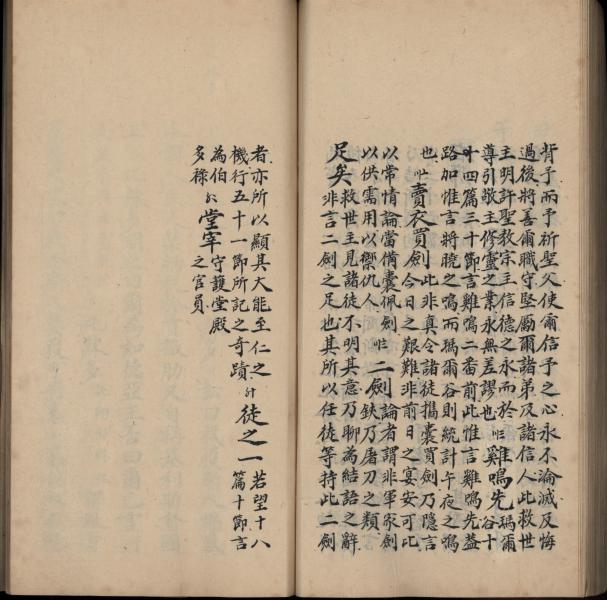 背予而予祈聖父使爾信予之心永不淪滅及悔
過後將善爾職守堅勵爾諸弟及諸信人此救世
主明許聖教宗主信德之永而於
尊引敬主修靈之業永無差謬也
雞鳴先
瑪爾
谷十
十四篇三十節言雞鳴二番前此惟言雞鳴先益
路加惟言將曉之鳴而瑪爾谷則統計午夜之鳴
也
賣衣買劍
此非真令諸徒攜囊買劍乃隱言
今日之艱難非前日之宴安可比
以常情論當備囊佩劍
以供需用以禦仇人
二劍
論者謂非軍家劍
鈇乃屠刀之類
足矣
救世主見諸徒不明其意乃聊為結語之辭
非言二劍之足也其所以任徒等持此二劍
者亦所以顯其大能至仁之
機行五十一節所記之奇蹟
徒之一
若望十八
篇十節言
為伯
多祿
堂宰
守護堂殿
之官員